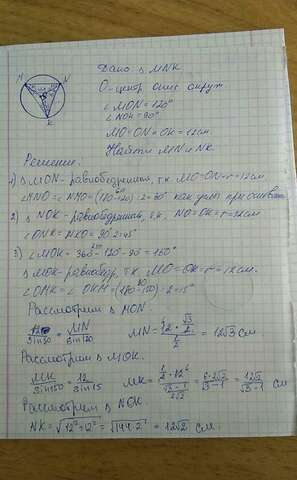 M N
O
K
Дано Δ MNK
O-центр опис окруж
∠MON = 120°
∠NOK = 90°
MO = ON = OK = 12см
Найти MN и NK.
Решение.
1) Δ MON - равнобедренный, т.к MO = ON = r = 12см
∠MNO = ∠NMO = (180-120):2 = 30° как углы при основан
2) Δ NOK - равнобедренный, т.к. NO = OK = r = 12см
∠ONK = ∠NKO = 90:2 = 45°
3) ∠MOK = 360° - 120° - 90° = 150°
Δ MOK - равнобедр, т.к MO = OK = r = 12см.
∠OMK = ∠OKM = (180-150):2 = 15°
Рассмотрим Δ MON
12/sin30 = MN/sin120 MN = 12 · √3/2 / 1/2 = 12√3 см
Рассмотрим Δ MOK.
MK/sin150 = 12/sin15 MK = 1/2 · 12 / (√3-1)/2√2 = 6·2√2/√3-1 = 12√2/√3-1 см
Рассмотрим Δ NOK
NK = √12²+12² = √144·2 = 12√2 см.